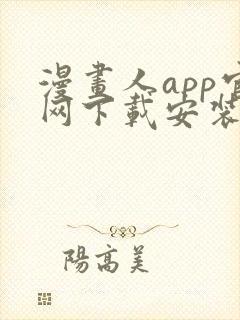 漫畫人app官
网下載安装
陽高美